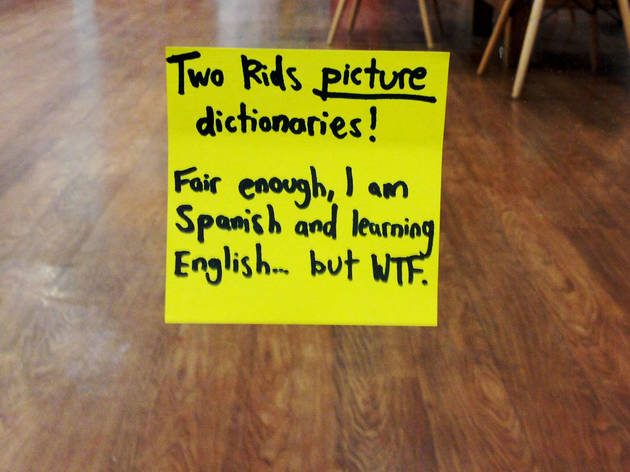 Two Kids picture
dictionaries!
Fair enough, I am
Spanish and learning
English... but WTF.